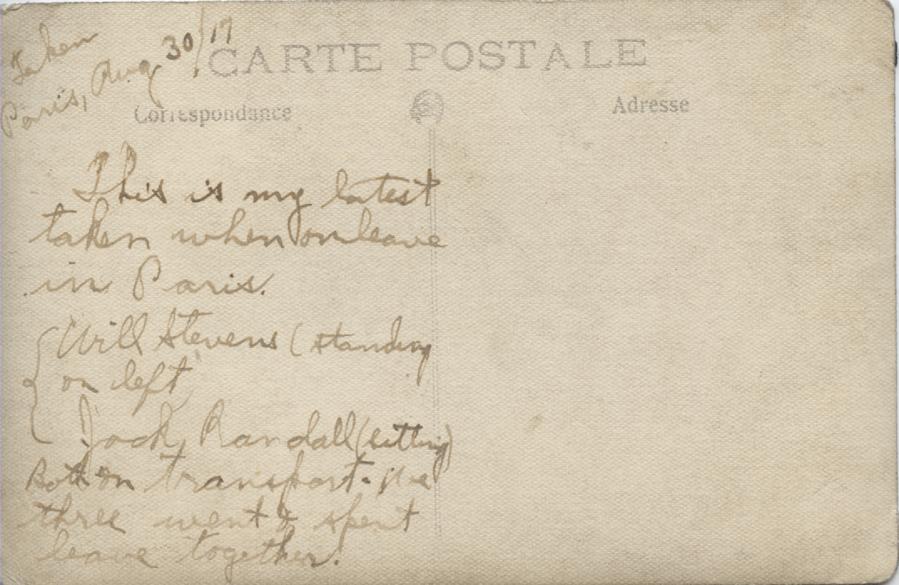 Taken
Paris, Aug 30/17
CARTE POSTALE
Correspondance
Adresse
This is my latest
taken when on leave
in Paris.
Will Stevens (standing
on left
Jack Randall (sitting)
Both on transport. We
three went & spent
leave together.